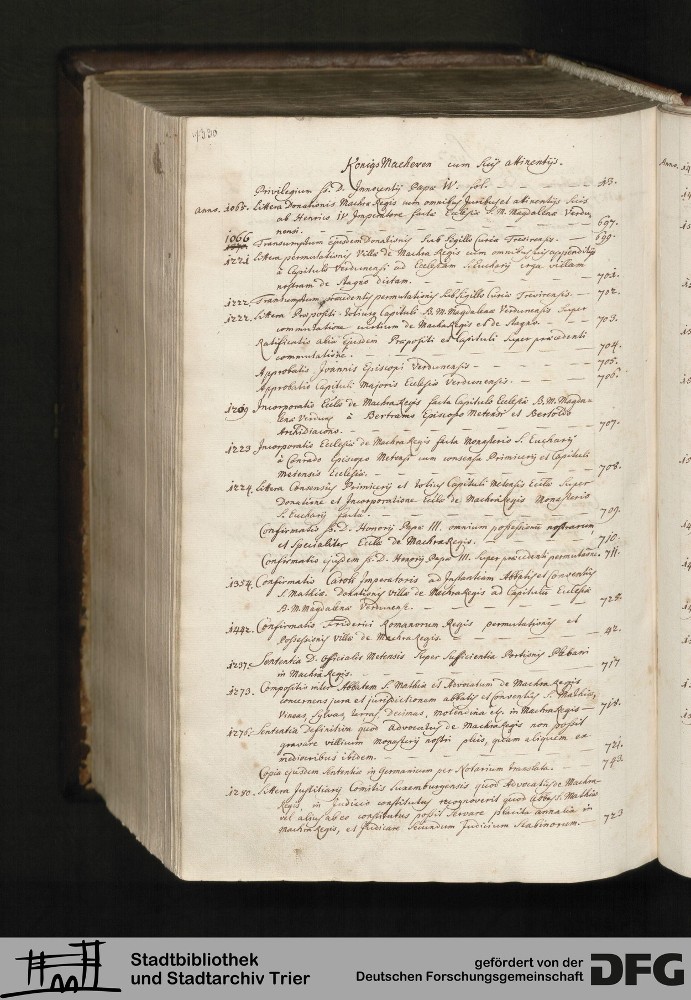 1330
Königs Macheren cum suis attinentijs.
Privilegium SS. D. Innocentij Papæ IV. fol. 43.
Anno. 1065. Littera Donationis Machra Regis cum omnibus Juribus et attinentijs suis
ab Henrico IV Imperatore facta Ecclesiæ S. M. Magdalenæ Verdu-
nensi. 697.
1066 Transumptum ejusdem Donationis sub Sigillo Curiæ Trevirensis. 699.
1221 Littera permutationis Villæ de Machra Regis cum omnibus suis appenditijs
à Capitulo Verdunensi ad Ecclesiam S. Eucharij erga villam
nostram de Stagno dictam. 701.
1222. Transumptum præcedentis permutationis sub Sigillo Curiæ Trevirensis. 702.
1222. Littera Præpositi totiusq Capituli B. M. Magdalenæ Verdunensis super
commutatione curtium de Machra Regis et de Stagno. 703.
Ratificatio alia ejusdem Præpositi et Capituli super præcedenti
commutatione. 704.
Approbatio Joannis Episcopi Verdunensis 705.
Approbatio Capituli Majoris Ecclesiæ Verdunensis. 706.
1209 Incorporatio Ecclæ de Machra Regis facta Capitulo Ecclesiæ B. M. Magda-
lenæ Verduny à Bertramo Episcopo Metensi et Bertoldo
Archidiacono. 707.
1223 Incorporatio Ecclesiæ de Machra Regis facta Monasterio S. Eucharij
à Conrado Episcopo Metensi cum consensu Primicerij et Capituli
Metensis Ecclesiæ. 708.
1224. Littera Consensus Primicerij et totius Capituli Metensis Ecclæ super
Donatione et Incorporatione Ecclæ de Machra Regis Monasterio
S. Eucharij facta. 709.
Confirmatio SS. D. Honorij Papæ III. omnium possessionum nostrarum
et specialiter Ecclæ de Machra Regis. 710.
Confirmatio ejusdem SS. D. Honorij Papæ III. super præcedenti permutatione. 711.
1354. Confirmatio Caroli Imperatoris ad Instantiam Abbatis et Conventus
S. Mathiæ. Donationis villæ de Machra Regis ad Capitulum Ecclesiæ
B. M. Magdalenæ Verdunensis. 728.
1442. Confirmatio Friderici Romanorum Regis permutationis et
Possessionis villæ de Machra Regis. 42.
1237. Sententia D. Officialis Metensis super sufficientia Portionis Plebani
in Machra Regis. 717
1273. Compositio inter Abbatem S. Mathiæ et Advocatum de Machra Regis
concernens jura et jurisdictionem abbatis et conventus S. Mathiæ,
Vineas, Sylvas, terras, decimas, molendina etc. in Machra Regis 718.
1275. Sententia Definitiva quod advocatus de Machra Regis non possit
gravare villicum monasterij nostri plus, quam aliquem ex
mediocribus ibidem. 721.
Copia ejusdem sententiæ in Germanicum per Notarium translata. 743.
1280. Littera Justitiarij Comitis Luxemburgensis quod Advocatus de Machra
Regis, in Judicio constitutus recognoverit quod Abbas S. Mathiæ
vel alius ab eo constitutus possit servare placita annalia in
Machra Regis, et Judicare secundum Judicium Scabinorum. 723
Anno.
Stadtbibliothek
und Stadtarchiv Trier
gefördert von der
Deutschen Forschungsgemeinschaft
DFG